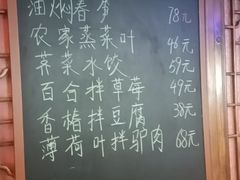 油焖春笋 78元
农家蒸菜叶 46元
荠菜水饺 59元
百合拌草莓 49元
香椿拌豆腐 38元
薄荷叶拌驴肉 68元